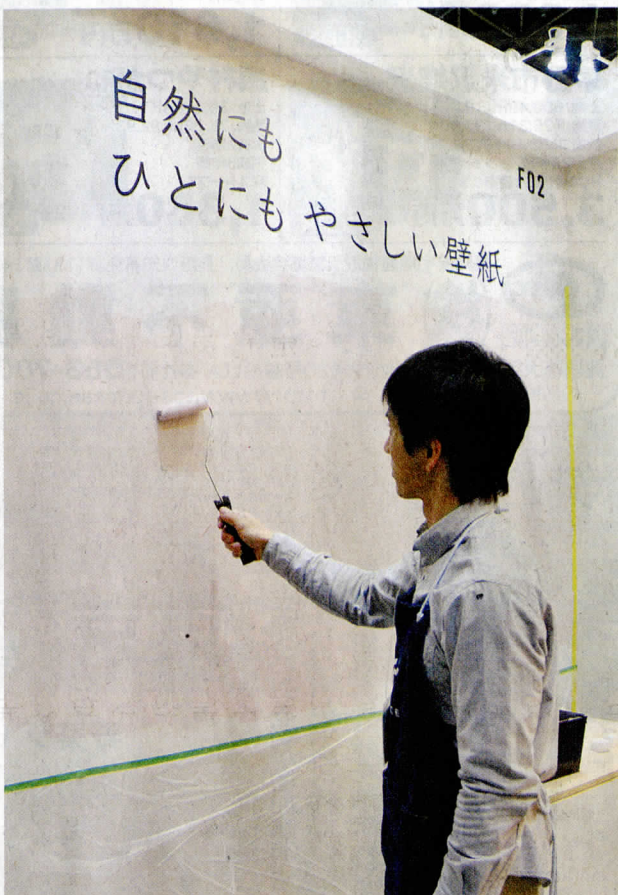 自然にも
ひとにもやさしい壁紙
F02